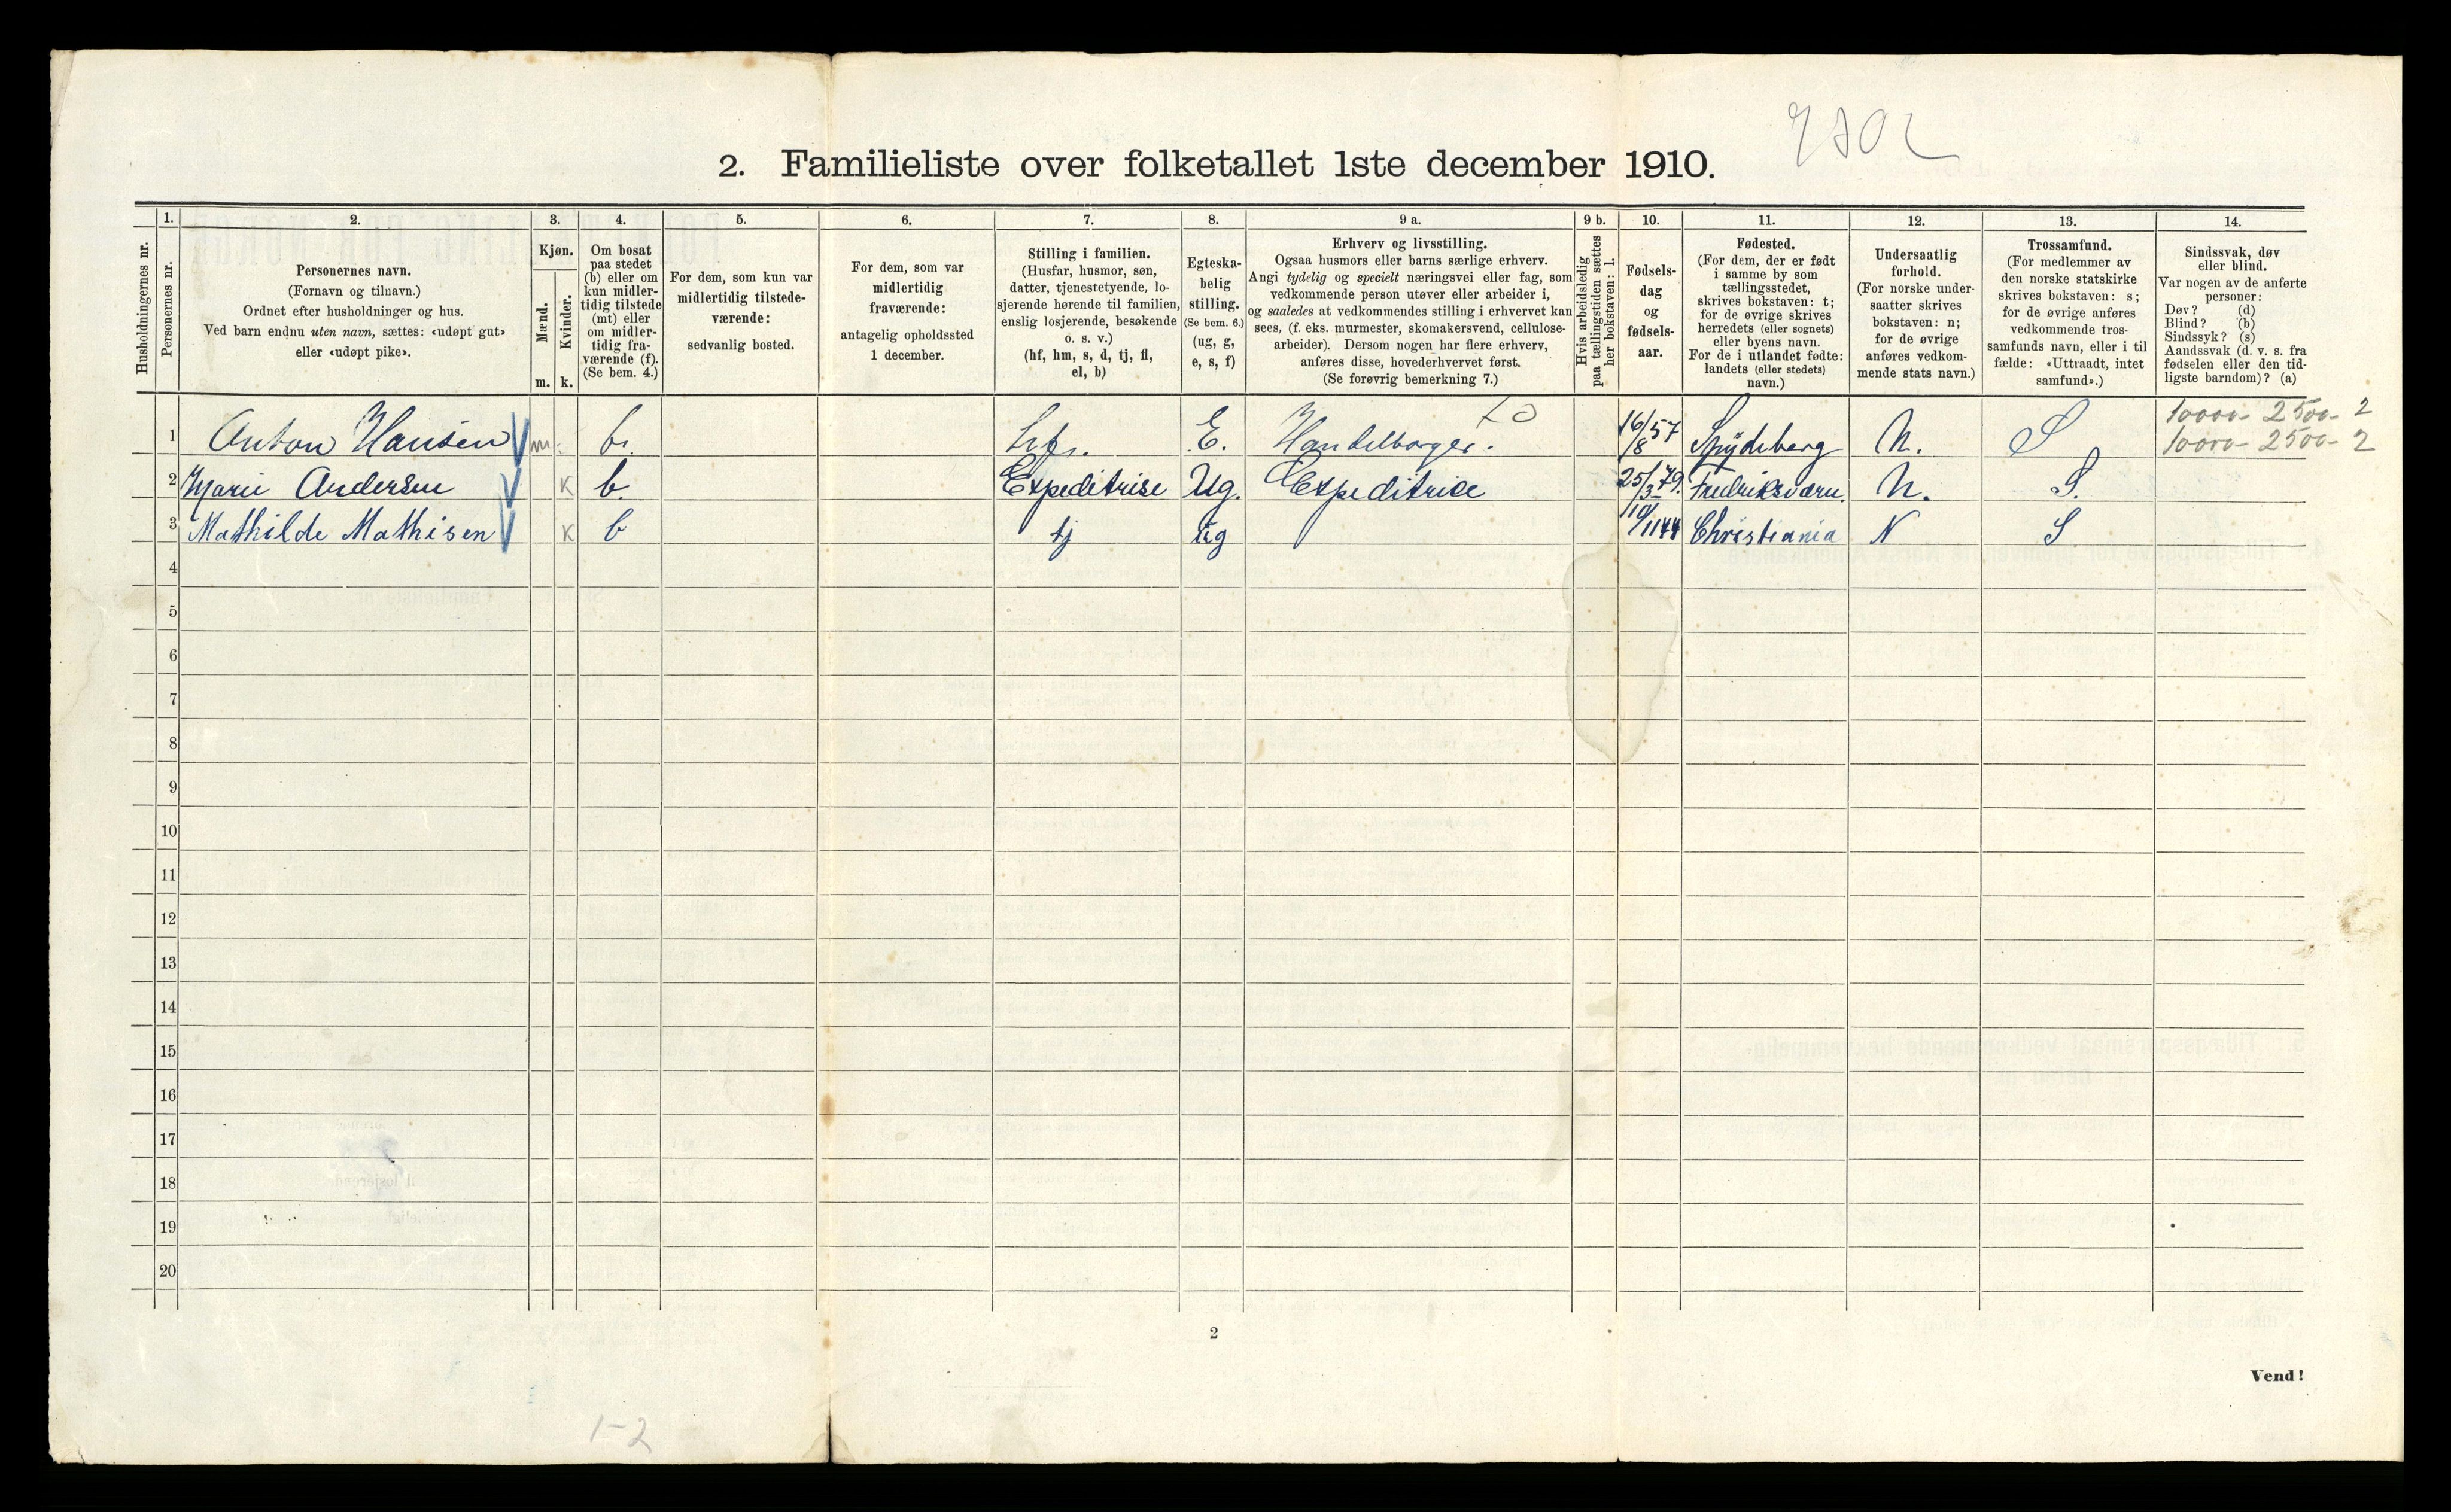 2. Familieliste over folketallet 1ste december 1910.
Husholdningernes nr.
1.
Personernes nr.
2.
Personernes navn.
(Fornavn og tilnavn.)
Ordnet efter husholdninger og hus.
Ved barn endnu uten navn, sættes: «udøpt gut»
eller «udøpt pike».
3.
Kjøn.
Mænd.
Kvinder.
m. k.
4.
Om bosat
paa stedet
(b) eller om
kun midler-
tidig tilstede
(mt) eller
om midler-
tidig fra-
værende (f).
(Se bem. 4.)
5.
For dem, som kun var
midlertidig tilstede-
værende:
sedvanlig bosted.
6.
For dem, som var
midlertidig
fraværende:
antagelig opholdssted
1 december.
7.
Stilling i familien.
(Husfar, husmor, søn,
datter, tjenestetyende, lo-
sjerende hørende til familien,
enslig losjerende, besøkende
o. s. v.)
(hf, hm, s, d, tj, fl,
el, b)
8.
Egteska-
belig
stilling.
(Se bem. 6.)
(ug, g,
e, s, f)
9 a.
Erhverv og livsstilling.
Ogsaa husmors eller barns særlige erhverv.
Angi tydelig og specielt næringsvei eller fag, som
vedkommende person utøver eller arbeider i,
og saaledes at vedkommendes stilling i erhvervet kan
sees, (f. eks. murmester, skomakersvend, cellulose-
arbeider). Dersom nogen har flere erhverv,
anføres disse, hovederhvervet først.
(Se forøvrig bemerkning 7.)
9 b.
Hvis arbeidsledig
paa tællingstiden sættes
her bokstaven: l.
10.
Fødsels-
dag
og
fødsels-
aar.
11.
Fødested.
(For dem, der er født
i samme by som
tællingsstedet,
skrives bokstaven: t;
for de øvrige skrives
herredets (eller sognets)
eller byens navn.
For de i utlandet fødte:
landets (eller stedets)
navn.)
12.
Undersaatlig
forhold.
(For norske under-
saatter skrives
bokstaven: n;
for de øvrige
anføres vedkom-
mende stats navn.)
13.
Trossamfund.
(For medlemmer av
den norske statskirke
skrives bokstaven: s;
for de øvrige anføres
vedkommende tros-
samfunds navn, eller i til
fælde: «Uttraadt, intet
samfund».)
14.
Sindssvak, døv
eller blind.
Var nogen av de anførte
personer:
Døv? (d)
Blind? (b)
Sindssyk? (s)
Aandssvak (d. v. s. fra
fødselen eller den tid-
ligste barndom)? (a)
10000- 2500- 2
1 Anton Hansen m. b. E. Handelborger. 16/8 57 Spydeberg N. S 10000- 2500- 2
2 Marie Andersen K b. Expeditrise Ug. Expeditrice 25/3 79. Fredriksværn. N. S.
3 Mathilde Mathisen K b tj ug 10/11 44 Christiania N S
4
5
6
7
8
9
10
11
12
13
14
15
16
17
18
19
20
2
Vend!
1-2